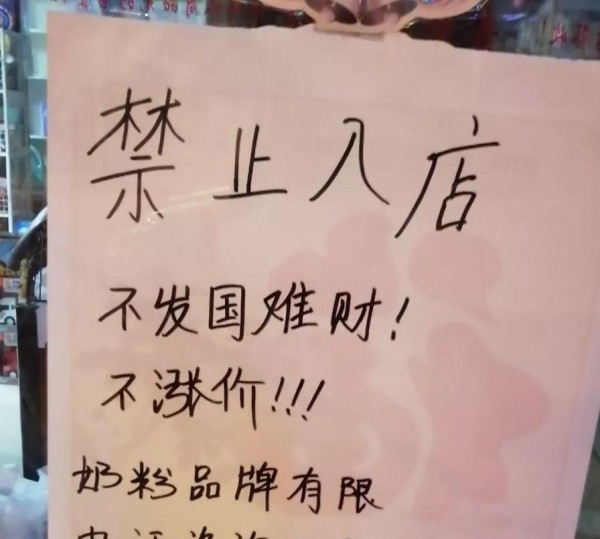 禁止入店
不发国难财!
不涨价!!!
奶粉品牌有限